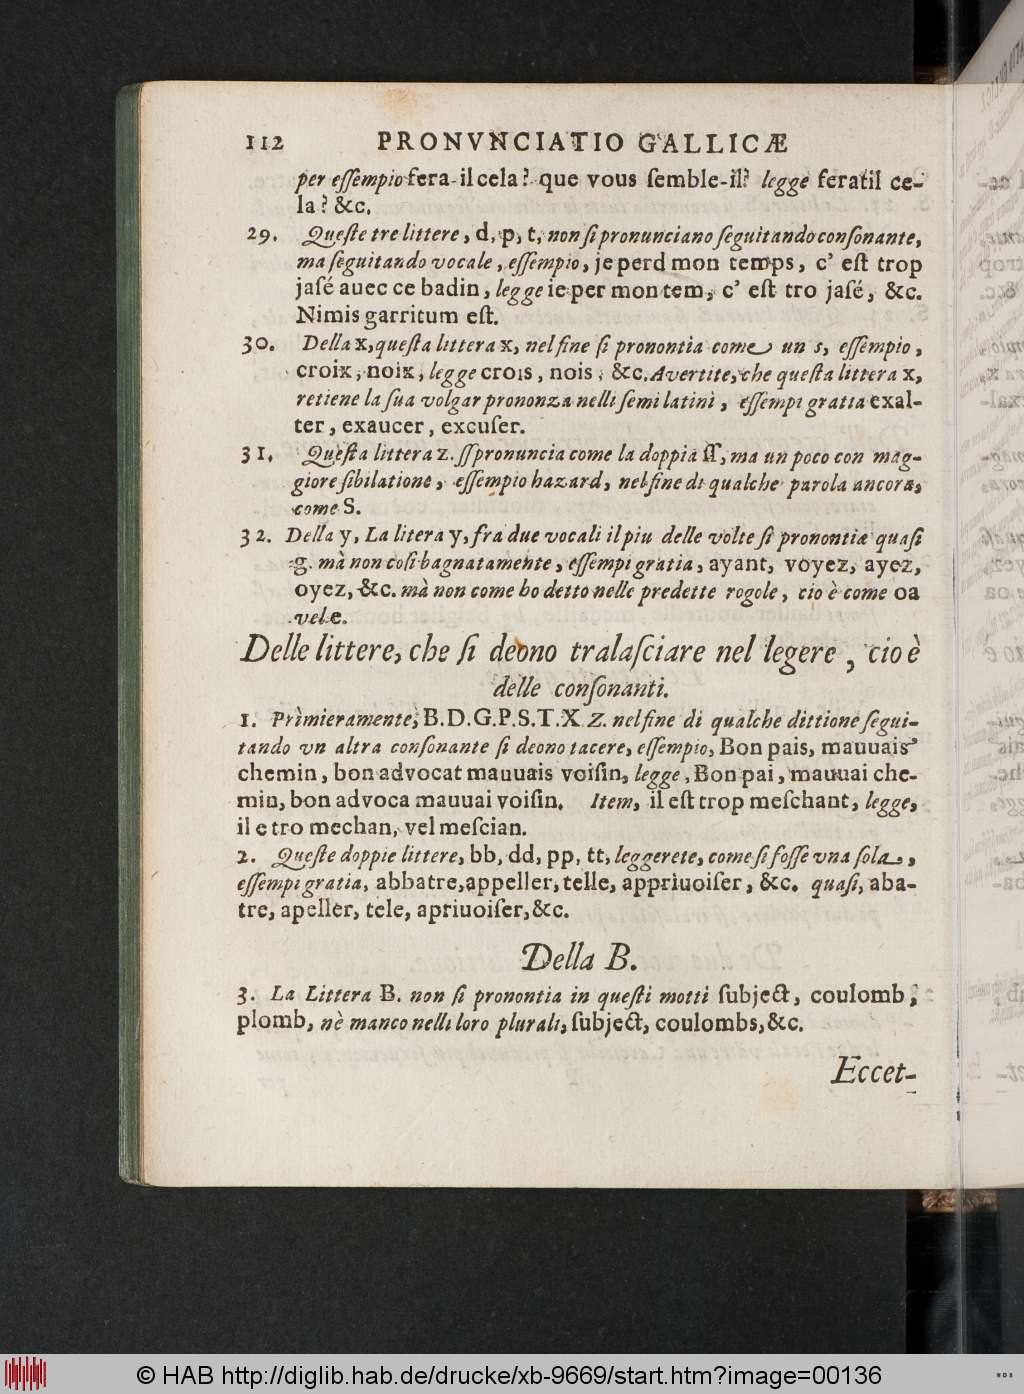 112 PRONVNCIATIO GALLICÆ
per eſſempio fera-il cela? que vous ſemble-il? legge feratil ce-
la? &c.
29. Queſte tre littere, d, p, t, non ſi pronunciano ſeguitando conſonante,
ma ſeguitando vocale, eſſempio, je perd mon temps, c' eſt trop
jaſé auec ce badin, legge ie per mon tem, c' eſt tro jaſé, &c.
Nimis garritum eſt.
30. Della x, queſta littera x, nel fine ſi pronontia come un s, eſſempio,
croix, noix, legge crois, nois, &c. Avertite, che queſta littera x,
retiene la ſua volgar prononza nelli ſemilatini, eſſempi gratia exal-
ter, exaucer, excuſer.
31. Queſta littera z. ſſpronuncia come la doppia ſſ, ma un poco con mag-
giore ſibilatione, eſſempio hazard, nel fine di qualche parola ancora,
come S.
32. Della y, La litera y, fra due vocali il piu delle volte ſi pronontia quaſi
g. mà non coſi bagnatamente, eſſempi gratia, ayant, voyez, ayez,
oyez, &c. mà non come ho detto nelle predette rogole, cio è come oa
vel e.
Delle littere, che ſi deono tralaſciare nel legere, cio è
delle conſonanti.
1. Primieramente, B. D. G. P. S. T. X. Z. nel fine di qualche dittione ſegui-
tando vn altra conſonante ſi deono tacere, eſſempio, Bon pais, mauuais
chemin, bon advocat mauuais voiſin, legge, Bon pai, mauuai che-
min, bon advoca mauuai voiſin. Item, il eſt trop meſchant, legge,
il e tro mechan, vel meſcian.
2. Queſte doppie littere, bb, dd, pp, tt, leggerete, come ſi foſſe vna ſola,
eſſempi gratia, abbatre, appeller, telle, appriuoiſer, &c. quaſi, aba-
tre, apeller, tele, apriuoiſer, &c.
Della B.
3. La Littera B. non ſi pronontia in queſti motti ſubject, coulomb,
plomb, nè manco nelli loro plurali, ſubject, coulombs, &c.
Eccet-
© HAB http://diglib.hab.de/drucke/xb-9669/start.htm?image=00136